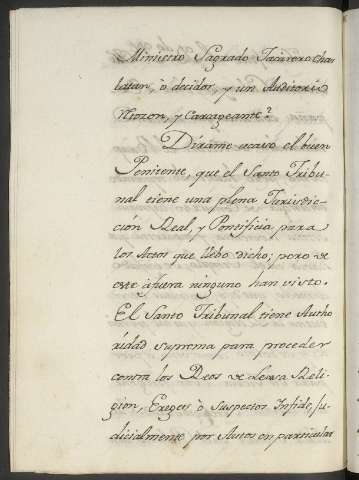 Ministro Sagrado Jacarero cha
latan, ò decidor, y un Auditorio
Mozon, y Carageante?
Dirame acaso el buen
Penitente, que el Santo Tribu-
nal tiene una plena Jurisdic-
ción Real, y Pontificia para
los Actos que llebo dicho; pero de
este afuera ninguno han visto.
El Santo Tribunal tiene Autho
ridad suprema para proceder
contra los Reos de Lessa Reli-
gion, Ereges ò Suspectos Infide, ju-
dicialmente por Autos en particular